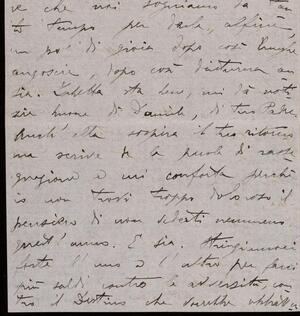 e che noi sogniamo da tan
to tempo per darle, affinc
un po' di gioia dopo così lunghe
angoscie, dopo così diuturna an
sia. Isabella sta bene, mi dà noti
zie buone di Danilo, di tuo Padre.
Anch'ella sospira il tuo ritorno
ma scrive de le parole di rasse
gnazione e mi conforta perchè
io non trovi troppo doloroso il
pensiero di non vederti nemmeno
quest'anno. E sia. Stringiamoci
forte l'uno a l'altro per farci
più saldi contro le avversità, con
tro il Destino che vorrebbe